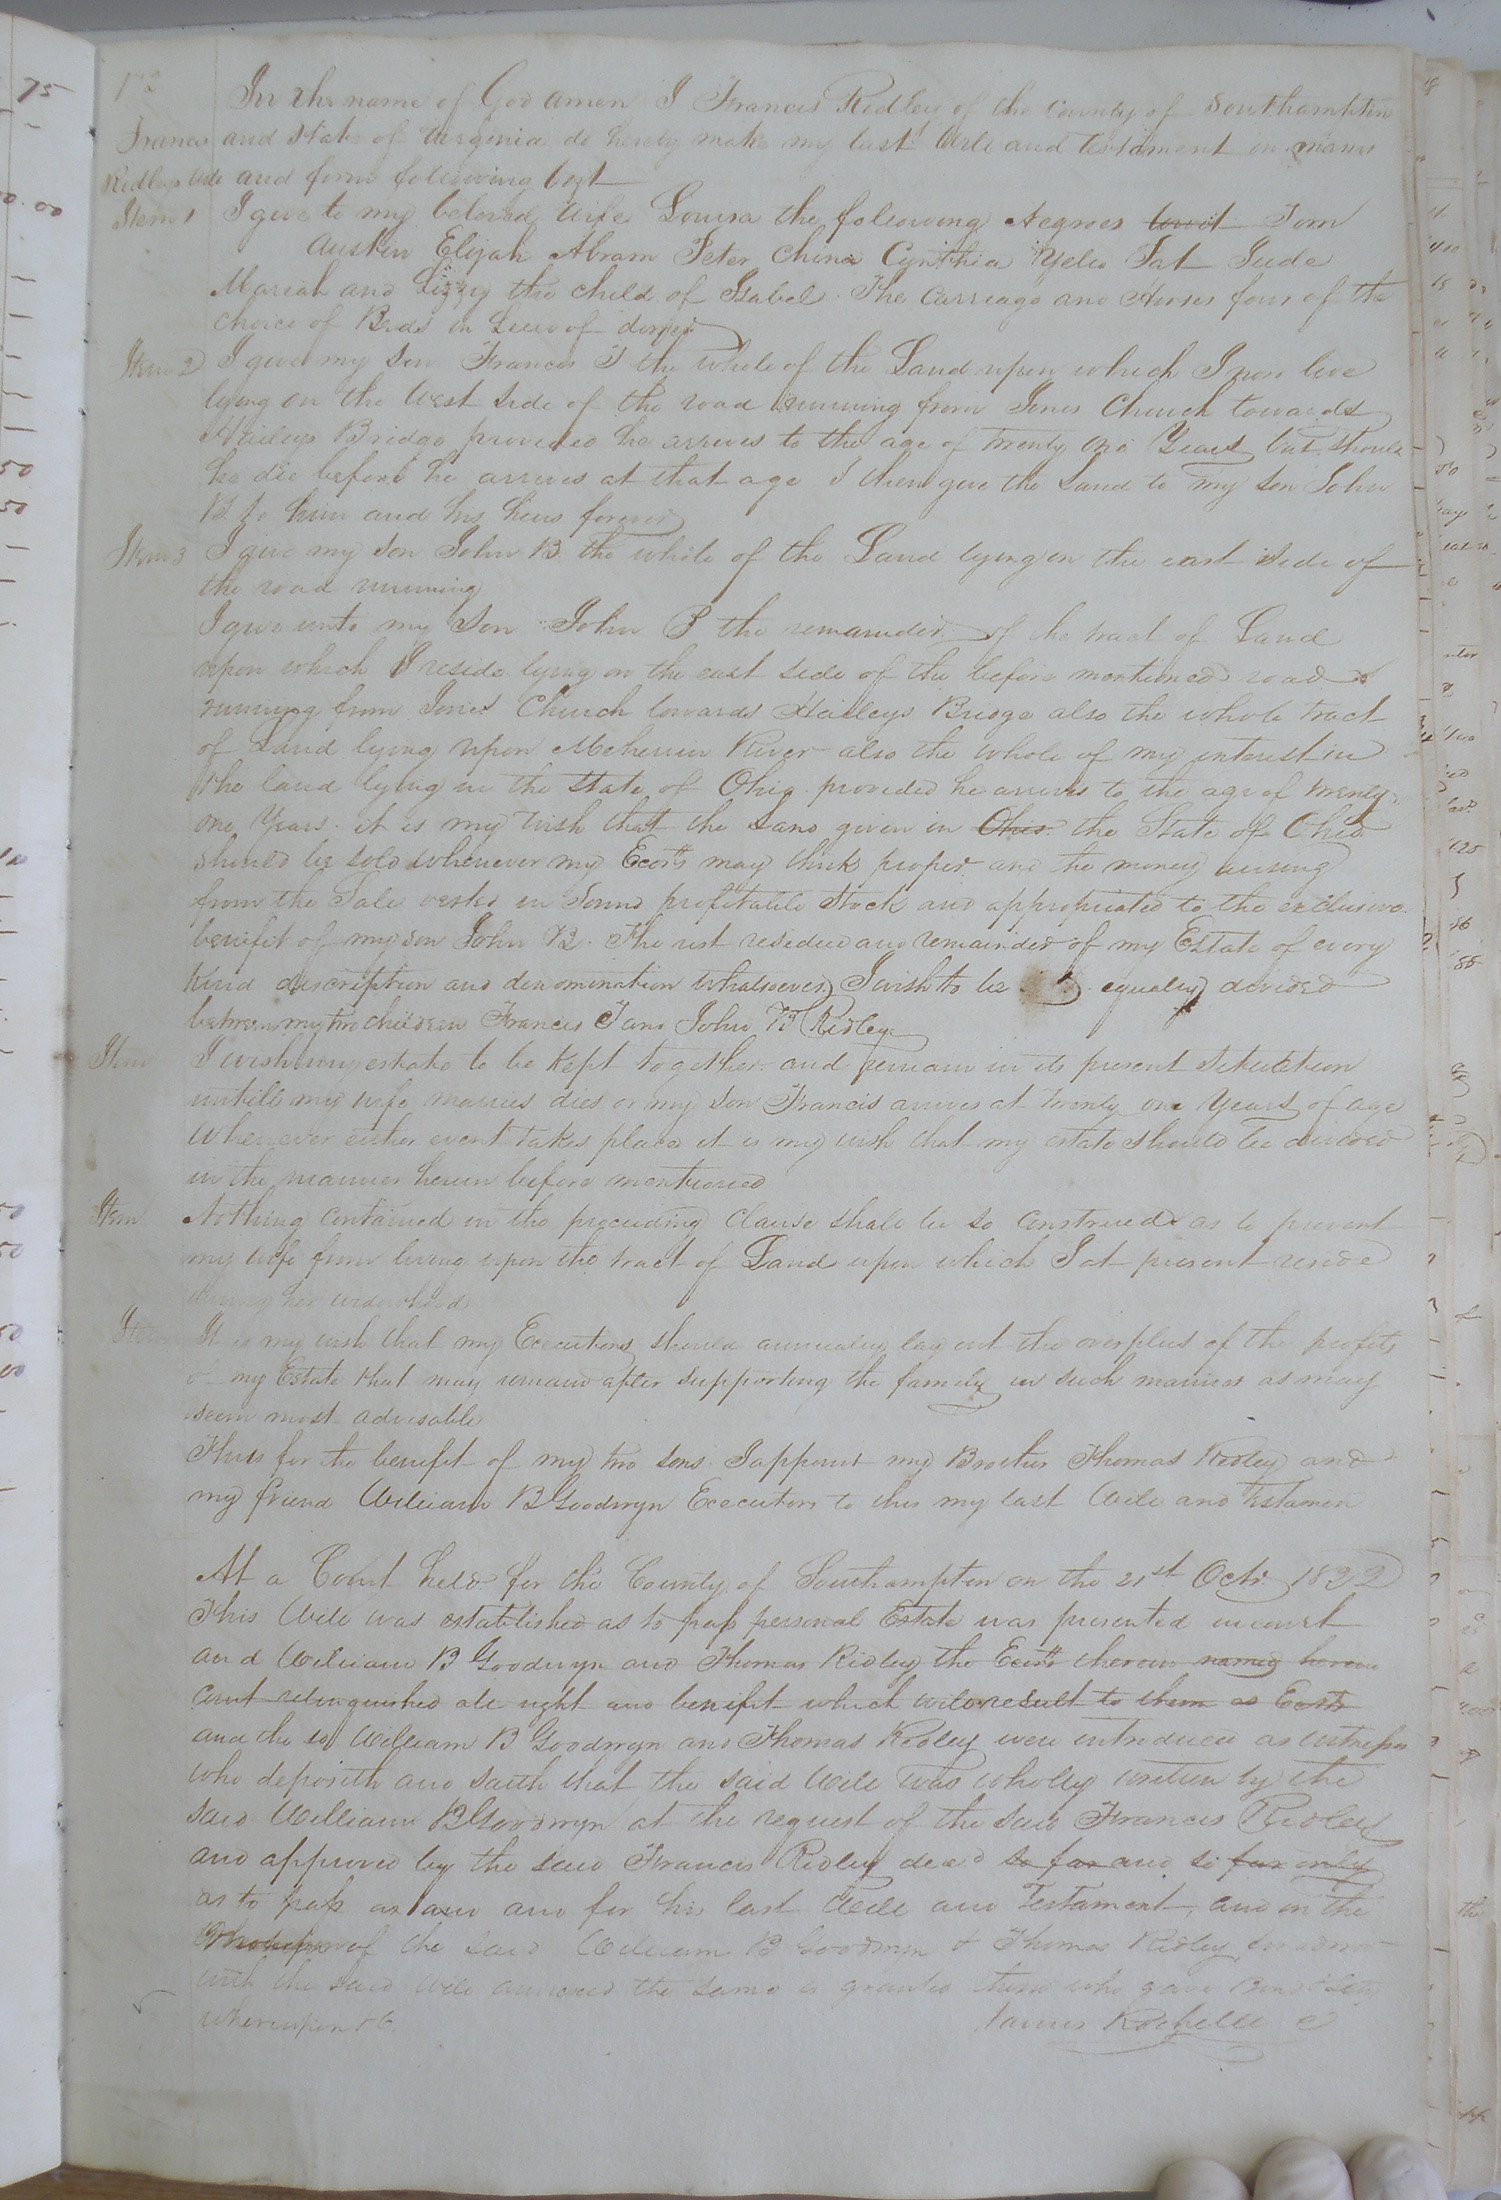 In the name of God amen I Francis Ridley of the County of Southampton
Francis and State of Virginia do hereby make my last Will and testament in manner
Ridleys Will and form following Vizt
Item 1 I give to my beloved Wife Louisa the following Negroes towit Tom
Austin Elijah Abram Peter China Cynthia Yelle Pat Jude
Mariah and Lizzy the child of Isabel. The Carriage and Horses four of the
choice of Beds in Lieu of dower
Item 2 I give my Son Francis T the whole of the Land upon which I now live
lying on the West side of the road running from Jones Church towards
Haileys Bridge provided he arrives to the age of twenty one Years but should
he die before he arrives at that age I then give the Land to my Son John
B. to him and his heirs forever
Item 3 I give my Son John B. the whole of the Land lying on the east side of
the road running
I give unto my Son John B the remainder of the tract of Land
upon which I reside lying on the east side of the before mentioned road
running from Jones Church towards Haileys Bridge also the whole tract
of Land lying upon Meherrin River also the whole of my interest in
the land lying in the State of Ohio provided he arrives to the age of twenty
one Years. it is my wish that the Land given in Ohio the State of Ohio
should be sold whenever my Exors may think proper and the money arising
from the Sale vested in Some profitable Stock and appropriated to the exclusive
benifit of my son John B. The rest residue and remainder of my Estate of every
Kind discription and denomination whatsoever I wish to be equally divided
between my two children Francis T and John B Ridley
Item I wish my estate to be kept together and remain in its present situation
untill my wife marries dies or my Son Francis arives at twenty one Years of age
Whenever either event takes place it is my wish that my estate should be divided
in the manner herein before mentioned
Item Nothing contained in the preceeding Clause shall be so construed as to prevent
my wife from living upon the tract of Land upon which I at present reside
during her widowhood
Item It is my wish that my Executors should annually lay out the overplus of the profits
of my Estate that may remain after supporting the family in such manner as may
seem most advisable
Thus for the benifit of my two sons I appoint my Brother Thomas Ridley and
my friend William B Goodwyn Executors to this my last Will and Testamen
At a Court held for the County of Southampton on the 21st Octr. 1822
This Will was established as to pass personal Estate was presented in court
and William B Goodwyn and Thomas Ridley the Exors therein named herein
court relinquished all right and benifit which will result to them as Exors
and the sd William B Goodwyn and Thomas Ridley were introduced as witnesses
who deposith and saith that the said Will was wholly written by the
said William B Goodwyn at the request of the said Francis Ridley
and approved by the said Francis Ridley decd so far and so far only
as to pass as and and for his last Will and Testament, and on the
of the said William B Goodwyn & Thomas Ridley
with the said Will annexed the same is granted them who gave Bond
whereupon &c. James Rochelle C